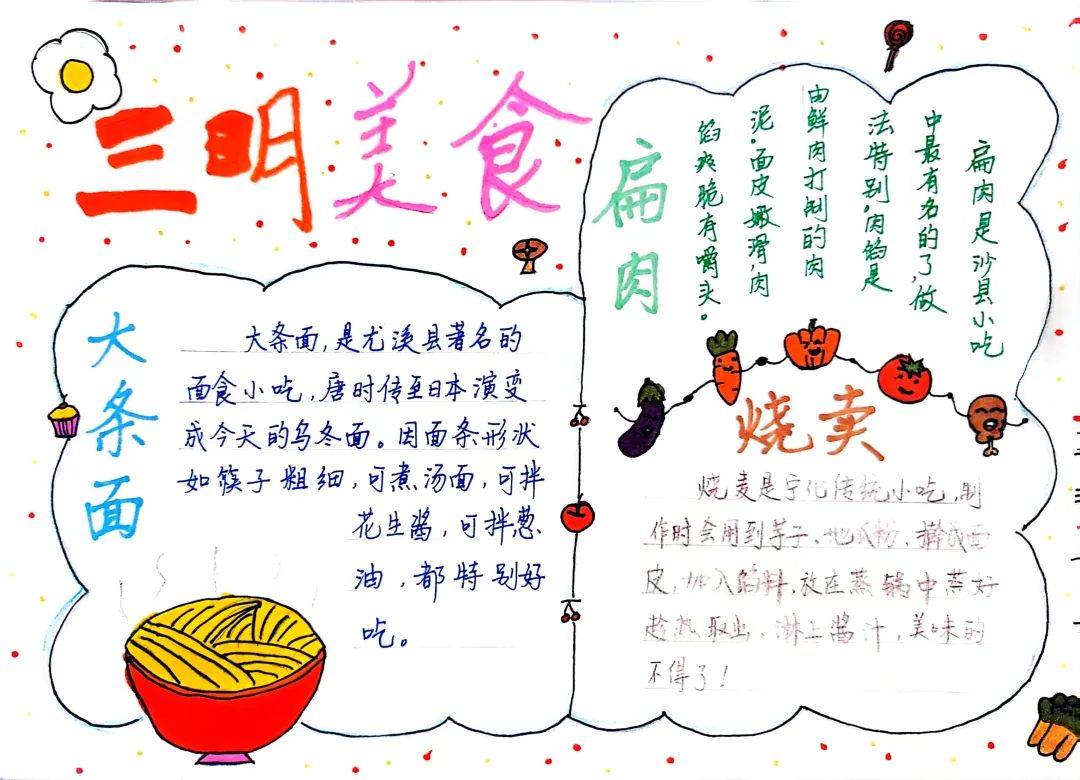 三明美食
大条面
大条面，是尤溪县著名的
面食小吃，唐时传至日本演变
成今天的乌冬面。因面条形状
如筷子粗细，可煮汤面，可拌
花生酱，可拌葱
油，都特别好
吃。
扁肉
扁肉是沙县小吃
中最有名的了，做
法特别，肉馅是
由鲜肉打制的肉
泥，面皮嫩滑，肉
馅爽脆有嚼头。
烧卖
烧麦是宁化传统小吃，制
作时会用到芋子、地瓜粉，擀成面
皮，加入馅料，放在蒸锅中蒸好
趁热取出，淋上酱汁，美味的
不得了！